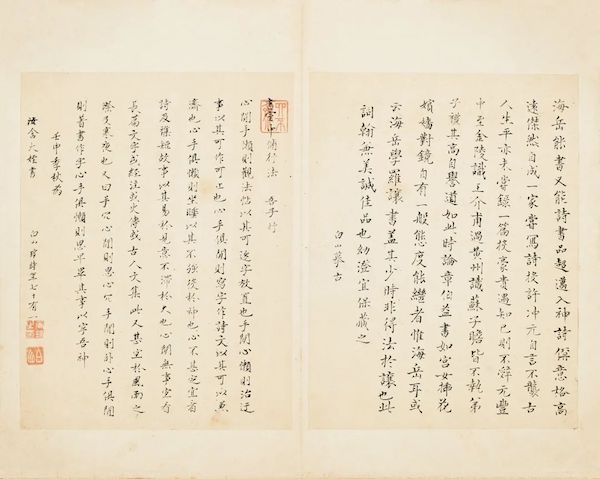 海岳能書又能詩書品超邁入神詩僕意格高
遠傑然自成一家嘗寫詩投許沖元自言不襲古
人生平亦未嘗錄一篇投豪貴遇知己則不辭元豐
中至金陵識王介甫過黃州識蘇子瞻皆不執弟
子禮其高自譽道如此時論章伯益書如宮女插花
嬪嬙對鏡自有一般態度能繼者惟海岳耳或
云海岳學羅讓書蓋其少時非得法於讓也此
詞翰兼美誠佳品也幼澄宜保藏之
白山張古
書室中脩行法 吾子行
心閒手懶則觀法帖以其可逐字放置也手閒心懶則治迂
事以其可作可止也心手俱閒則寫字作詩文以其可以兼
濟也心手俱懶則坐睡以其不強役於神也心不甚定宜看
詩及雜短故事以其易於見意不滯於久也心閒無事宜看
長篇文字或經注或史傳或古人文集此又甚宜於風雨之
際及寒夜也又曰手冗心閒則思心冗手閒則臥心手俱閒
則著書作字心手俱懶則思早畢其事以寧吾神
壬申季秋為
大僚書
白山 時年七十有一